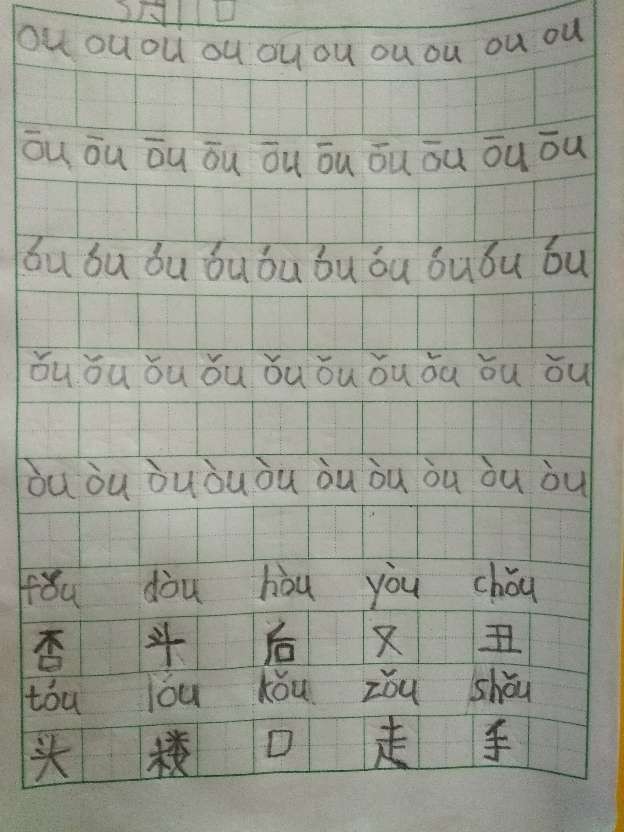 ou ou ou ou ou ou ou ou ou ou
ōu ōu ōu ōu ōu ōu ōu ōu ōu ōu
óu óu óu óu óu óu óu óu óu óu
ǒu ǒu ǒu ǒu ǒu ǒu ǒu ǒu ǒu ǒu
òu òu òu òu òu òu òu òu òu òu
fǒu dòu hòu yòu chǒu
否 斗 后 又 丑
tóu lóu kǒu zǒu shǒu
头 楼 口 走 手